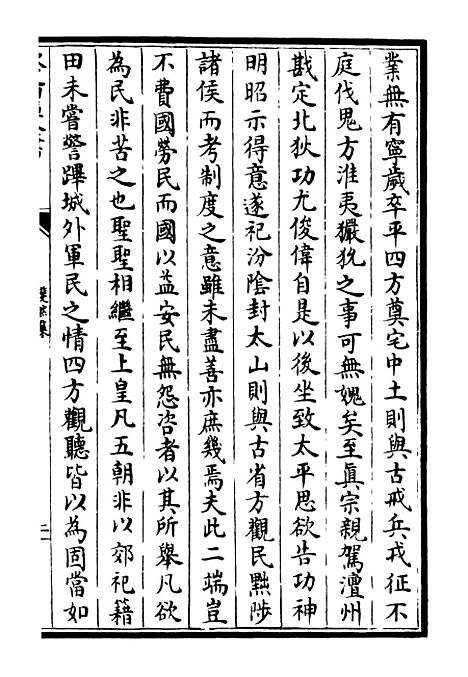 業無有寧歲卒平四方奠宅中土則與古戒兵戎征不
庭伐鬼方淮夷玁狁之事可無媿矣至眞宗親駕澶州
戡定北狄功尤俊偉自是以後坐致太平思欲告功神
明昭示得意遂祀汾陰封太山則與古省方觀民黜陟
諸侯而考制度之意雖未盡善亦庶幾焉夫此二端豈
不費國勞民而國以益安民無怨咨者以其所舉凡欲
為民非苦之也聖聖相繼至上皇凡五朝非以郊祀籍
田未嘗警蹕城外軍民之情四方觀聽皆以為固當如
二